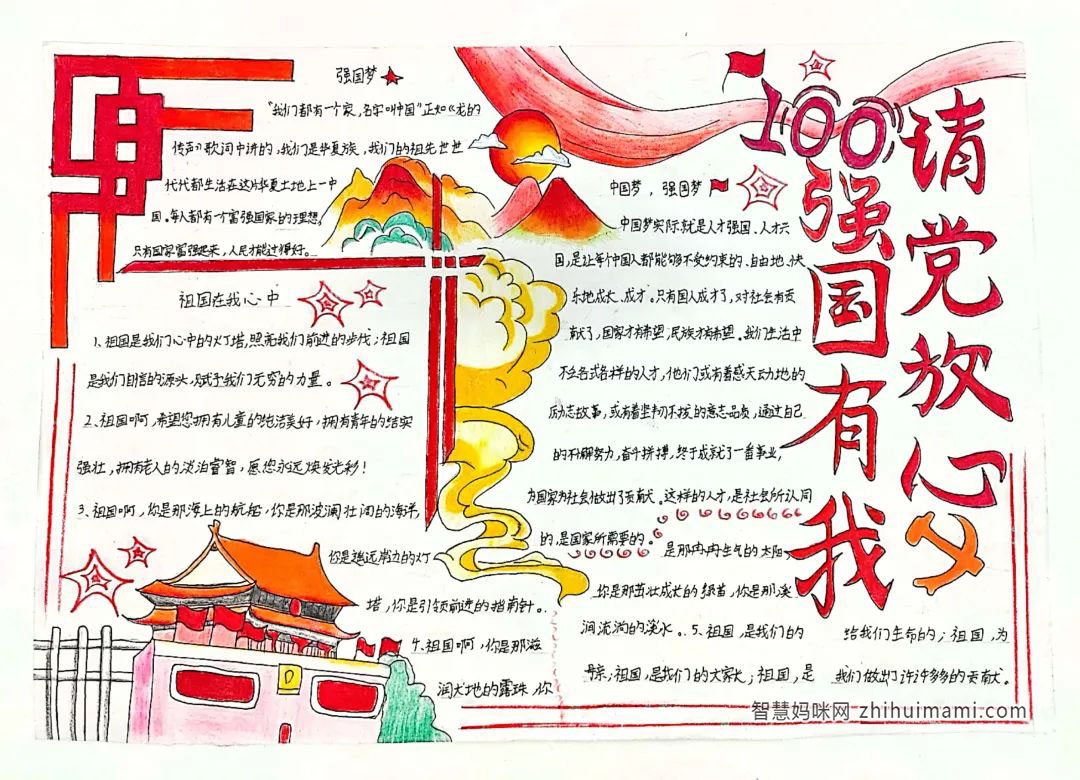 强国梦
"我们都有一个家,名字叫中国"正如《龙的
传声》歌词中讲的,我们是华夏族,我们的祖先世世
代代都生活在这片华夏土地上一中
国。每人都有一个富强国家的理想。
只有国家富强起来,人民才能过得好。
祖国在我心中
1、祖国是我们心中的灯塔,照亮我们前进的步伐;祖国
是我们自信的源头,赋予我们无穷的力量。
2、祖国啊,希望您拥有儿童的纯洁美好,拥有青年的结实
强壮,拥有老人的淡泊睿智,愿您永远焕发光彩!
3、祖国啊,你是那海上的航船,你是那波澜壮阔的海洋,
你是遥远岸边的灯
塔,你是引领前进的指南针。
4、祖国啊,你是那滋
润大地的露珠,你
是那冉冉生气的太阳
你是那茁壮成长的绿苗,你是那溪
涧流淌的溪水。5、祖国,是我们的
母亲;祖国,是我们的大家长;祖国,是
给我们生命的;祖国,为
我们做出了许许多多的贡献。
中国梦,强国梦
中国梦实际就是人才强国、人才兴
国,是让每个中国人都能够不受约束的、自由地、快
乐地成长、成才。只有国人成才了,对社会有贡
献了,国家才有希望,民族才有希望。我们生活中
不乏各式各样的人才,他们或有着感天动地的
励志故事,或有着坚韧不拔的意志品质,通过自己
的不懈努力,奋斗拼搏,终于成就了一番事业,
为国家为社会做出了贡献。这样的人才,是社会所认同
的,是国家所需要的。
100
请党放心
强国有我
智慧妈咪网 zhihuimami.com